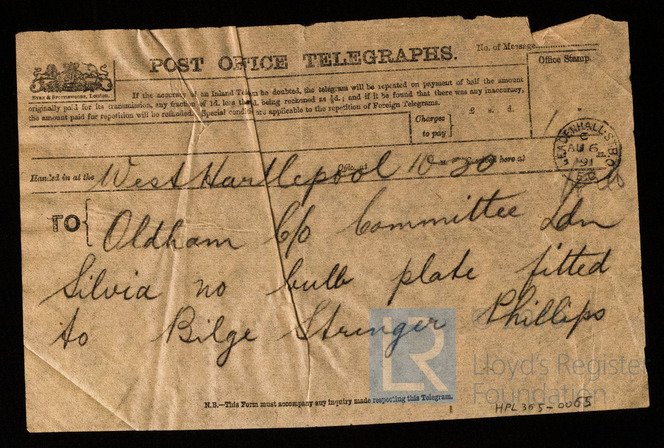 POST OFFICE TELEGRAPHS.
No. of Message
Office Stamp.
If the accuracy of an Inland Telegram be doubted, the telegram will be repeated on payment of half the amount
originally paid for its transmission, any fraction of 1d. less than ½d. being reckoned as ½d.; and if it be found that there was any inaccuracy,
the amount paid for repetition will be refunded. Special conditions are applicable to the repetition of Foreign Telegrams.
Charges to pay
£ s. d.
LEADENHALL S.T B.O
C
AU 6
91
Handed in at the West Hartlepool Office at 10-30 Received here at
TO Oldham C/o Committee Ldn
Silvia no bulb plate fitted
to Bilge Stringer Phillips
LR
Lloyd's Register
Foundation
N.B.—This Form must accompany any inquiry made respecting this Telegram.
HPL365-0065